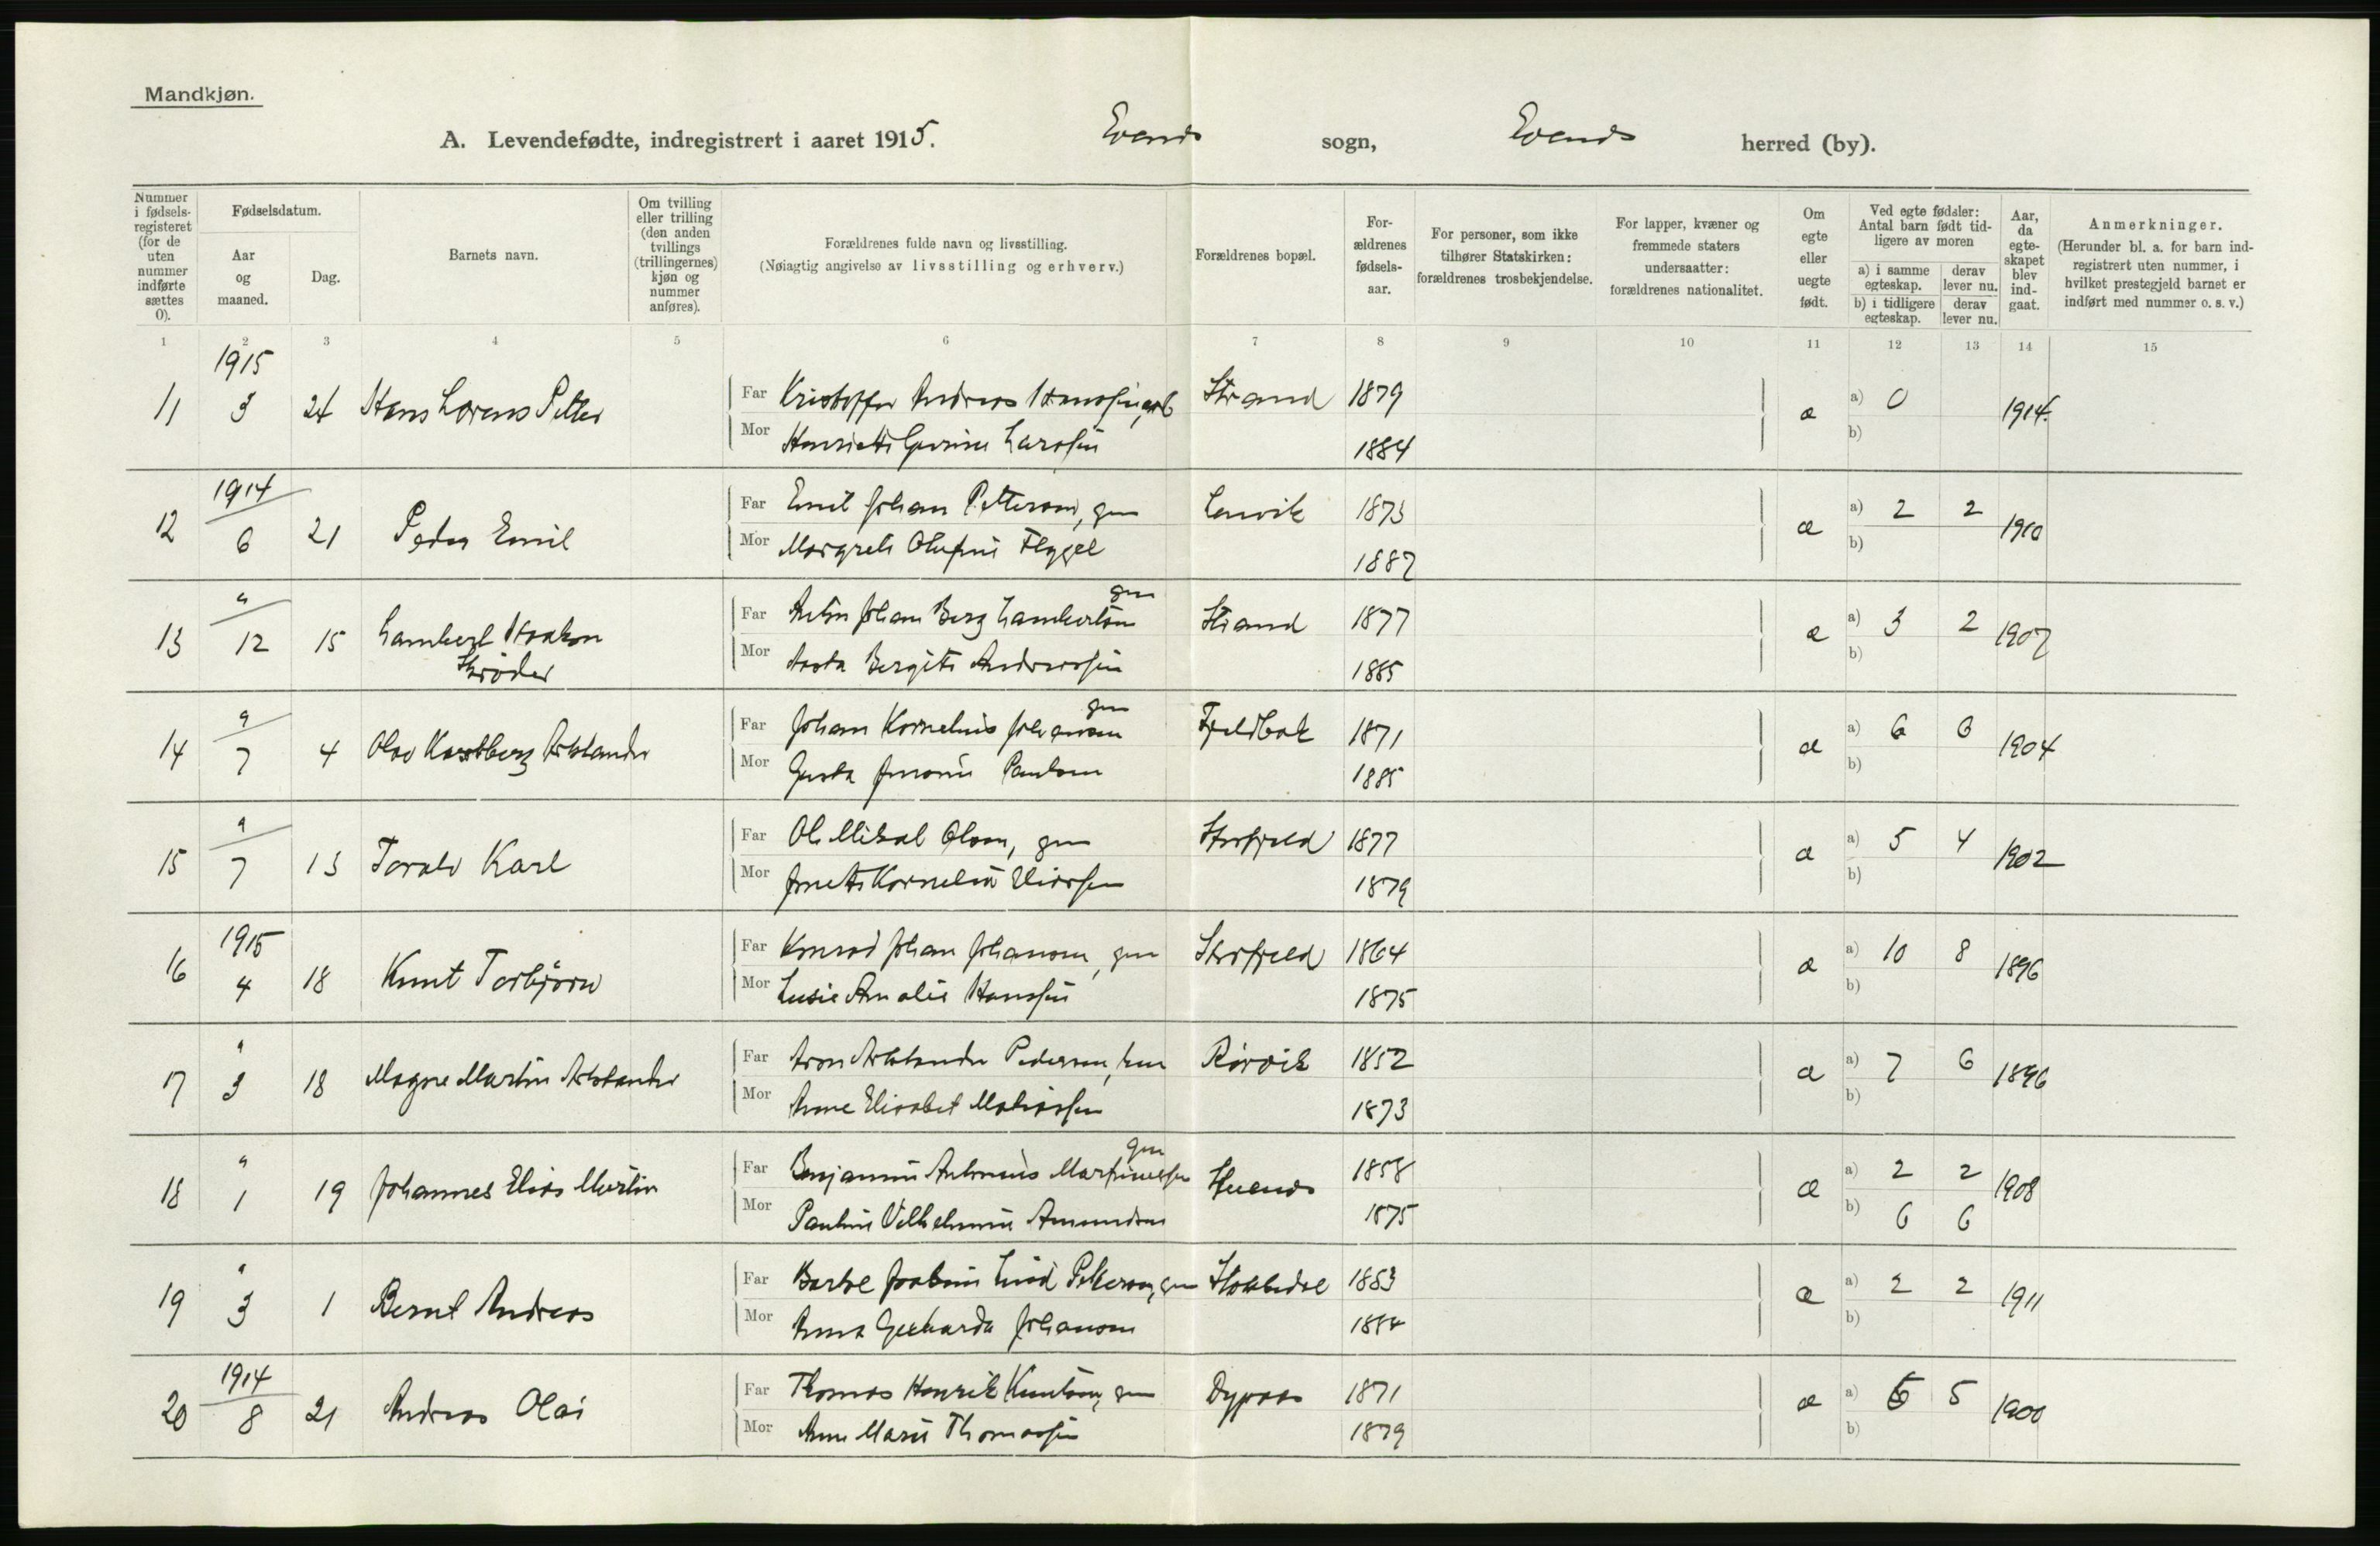 Mandkjøn.
A. Levendefødte, indregistrert i aaret 1915. Evenes sogn, Evenes herred (by).
Nummer i fødsels-registeret (for de uten nummer indførte sættes 0).
Fødselsdatum.
Aar og maaned.
Dag.
Barnets navn.
Om tvilling eller trilling (den anden tvillings (trillingernes) kjøn og nummer anføres).
Forældrenes fulde navn og livsstilling.
(Nøiagtig angivelse av livsstilling og erhverv.)
Forældrenes bopæl.
For-ældrenes fødsels-aar.
For personer, som ikke tilhører Statskirken: forældrenes trosbekjendelse.
For lapper, kvæner og fremmede staters undersaatter: forældrenes nationalitet.
Om egte eller uegte født.
Ved egte fødsler: Antal barn født tid-ligere av moren
a) i samme egteskap. derav lever nu.
b) i tidligere egteskap. derav lever nu.
Aar, da egte-skapet blev ind-gaat.
Anmerkninger.
(Herunder bl. a. for barn ind-registrert uten nummer, i hvilket prestegjeld barnet er indført med nummer o. s. v.)
1 2 3 4 5 6 7 8 9 10 11 12 13 14 15
1915
11 3 24 Hans Lorens Petter Far Kristoffer Andreas Hanssen, arb Strand 1879 æ a) 0 1914.
Mor Henriette Larssen 1884 b)
1914
12 6 21 Peder Emil Far Emil Johan Petterson, gm Lenvik 1873 æ a) 2 2 1910
Mor Margrete Olufine Flygel 1887 b)
"
gm
13 12 15 Lambert Haakon Far Anton Johan Berg Lambertsen Strand 1877 æ a) 3 2 1907
Strøder Mor Aasta Bergite Andreassen 1885 b)
"
gm
14 7 4 Olav Karstberg Alexander Far Johan Kornelius Johansen Fjeldbak 1871 æ a) 6 6 1904
Mor Gusta Paulsen 1885 b)
"
15 7 13 Toralv Karl Far Ole Mikal Olsen, gm Storfjeld 1877 æ a) 5 4 1902
Mor Kornelia Eliassen 1879 b)
1915
16 4 18 Knut Torbjørn Far Konrad Johan Johansen, gm Storfjeld 1864 æ a) 10 8 1896
Mor Lusie Amalie Hanssen 1875 b)
"
17 3 18 Magne Martin Alexander Far Aron Alexander Pedersen, Rørvik 1852 æ a) 7 6 1896
Mor Anne Elisabet Mathiassen 1873 b)
"
gm
18 1 19 Johannes Elias Martin Far Benjamin Antonius Martinussen 1858 æ a) 2 2 1908
Mor Pauline Vilhelmine Amundsen 1875 b) 6 6
"
19 3 1 Bernt Andreas Far Lind Petterson, gm 1883 æ a) 2 2 1911
Mor Anna Gerharda Johansen 1884 b)
1914
20 8 21 Andreas Olai Far Thomas Henrik Knutsen, gm Dypaas 1871 æ a) 6 5 1900
Mor Anne Marie Thomassen 1879 b)